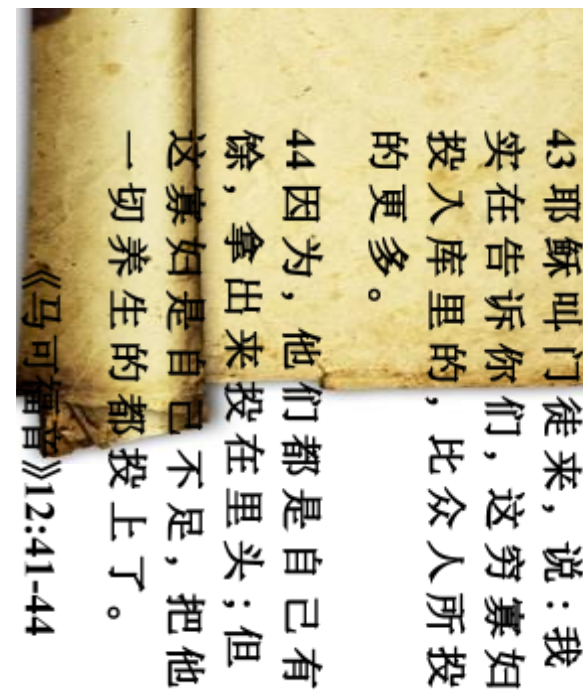 43 耶稣叫门徒来，说：我
实在告诉你们，这穷寡妇
投入库里的，比众人所投
的更多。
44 因为，他们都是自己有
馀，拿出来投在里头；但
这寡妇是自己不足，把他
一切养生的都投上了。
《马可福音》12:41-44